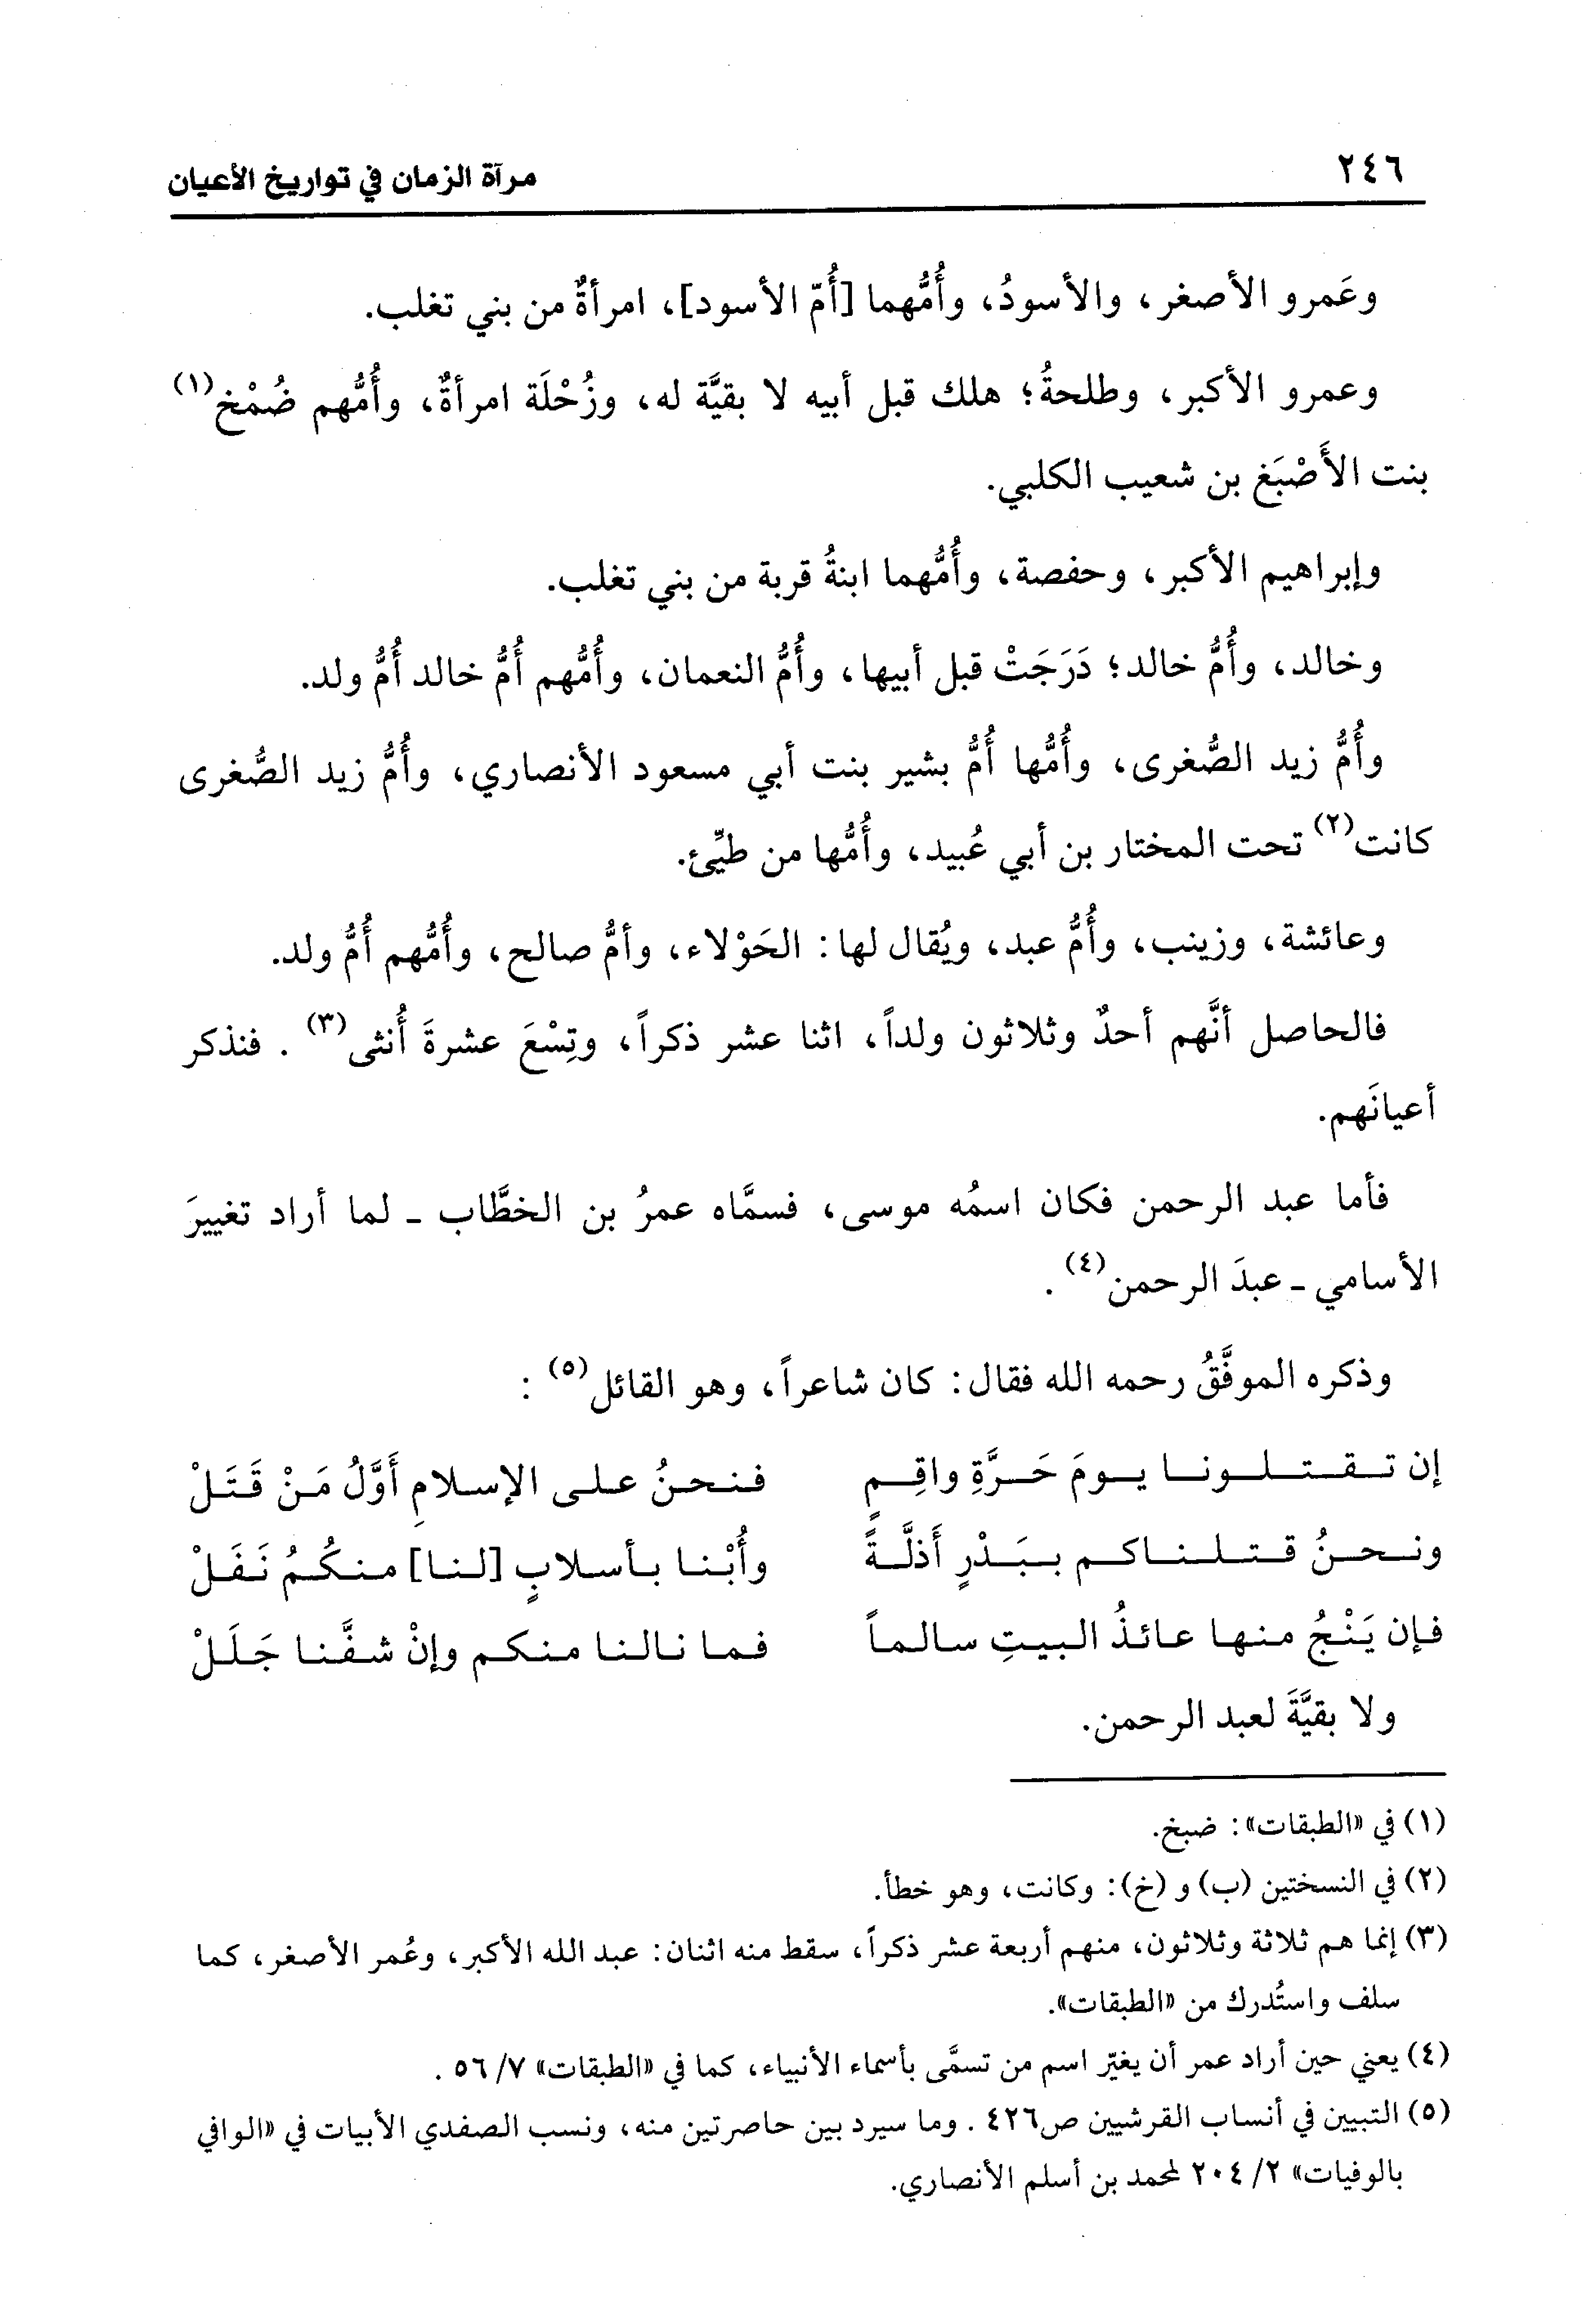 ٢٤٦
مرآة الزمان في تواريخ الأعيان
وعَمرو الأصغر، والأسودُ، وأُمُّهما [أُمّ الأسود]، امرأةٌ من بني تغلب.
وعمرو الأكبر، وطلحةُ؛ هلك قبل أبيه لا بقيَّة له، وزُحْلَة امرأةٌ، وأُمُّهم ضُمْخ(١)
بنت الأَصْبَغ بن شعيب الكلبي.
وإبراهيم الأكبر، وحفصة، وأُمُّهما ابنةُ قربة من بني تغلب.
وخالد، وأُمُّ خالد؛ دَرَجَتْ قبل أبيها، وأُمُّ النعمان، وأُمُّهم أُمُّ خالد أُمُّ ولد.
وأُمُّ زيد الصُّغرى، وأُمُّها أُمُّ بشير بنت أبي مسعود الأنصاري، وأُمُّ زيد الصُّغرى
كانت(٢) تحت المختار بن أبي عُبيد، وأُمُّها من طيِّئ.
وعائشة، وزينب، وأُمُّ عبد، ويُقال لها: الحَوْلاء، وأمُّ صالح، وأُمُّهم أُمُّ ولد.
فالحاصل أنَّهم أحدٌ وثلاثون ولداً، اثنا عشر ذكراً، وتِسْعَ عشرةَ أُنثى(٣). فنذكر
أعيانَهم.
فأما عبد الرحمن فكان اسمُه موسى، فسمَّاه عمرُ بن الخطَّاب ـ لما أراد تغييرَ
الأسامي ـ عبدَ الرحمن(٤).
وذكره الموفَّقُ رحمه الله فقال: كان شاعراً، وهو القائل(٥):
إن تـقـتـلـونـا يـومَ حَـرَّةِ واقِـمٍ فـنـحـنُ عـلـى الإسـلامِ أَوَّلُ مَـنْ قَـتَـلْ
ونـحـنُ قـتـلـنـاكـم بـبَـدْرٍ أَذلَّـةً وأُبْـنـا بـأسـلابٍ [لـنـا] مـنـكُـمُ نَـفَـلْ
فـإن يَـنْـجُ مـنـهـا عـائـذُ الـبـيـتِ سـالـمـاً فـمـا نـالـنـا مـنـكـم وإنْ شـفَّـنـا جَـلَـلْ
ولا بقيَّةَ لعبد الرحمن.
(١) في «الطبقات»: ضبخ.
(٢) في النسختين (ب) و (خ): وكانت، وهو خطأ.
(٣) إنما هم ثلاثة وثلاثون، منهم أربعة عشر ذكراً، سقط منه اثنان: عبد الله الأكبر، وعُمر الأصغر، كما
سلف واستُدرك من «الطبقات».
(٤) يعني حين أراد عمر أن يغيّر اسم من تسمَّى بأسماء الأنبياء، كما في «الطبقات» ٧/ ٥٦.
(٥) التبيين في أنساب القرشيين ص٤٢٦. وما سيرد بين حاصرتين منه، ونسب الصفدي الأبيات في «الوافي
بالوفيات» ٢/ ٢٠٤ لمحمد بن أسلم الأنصاري.